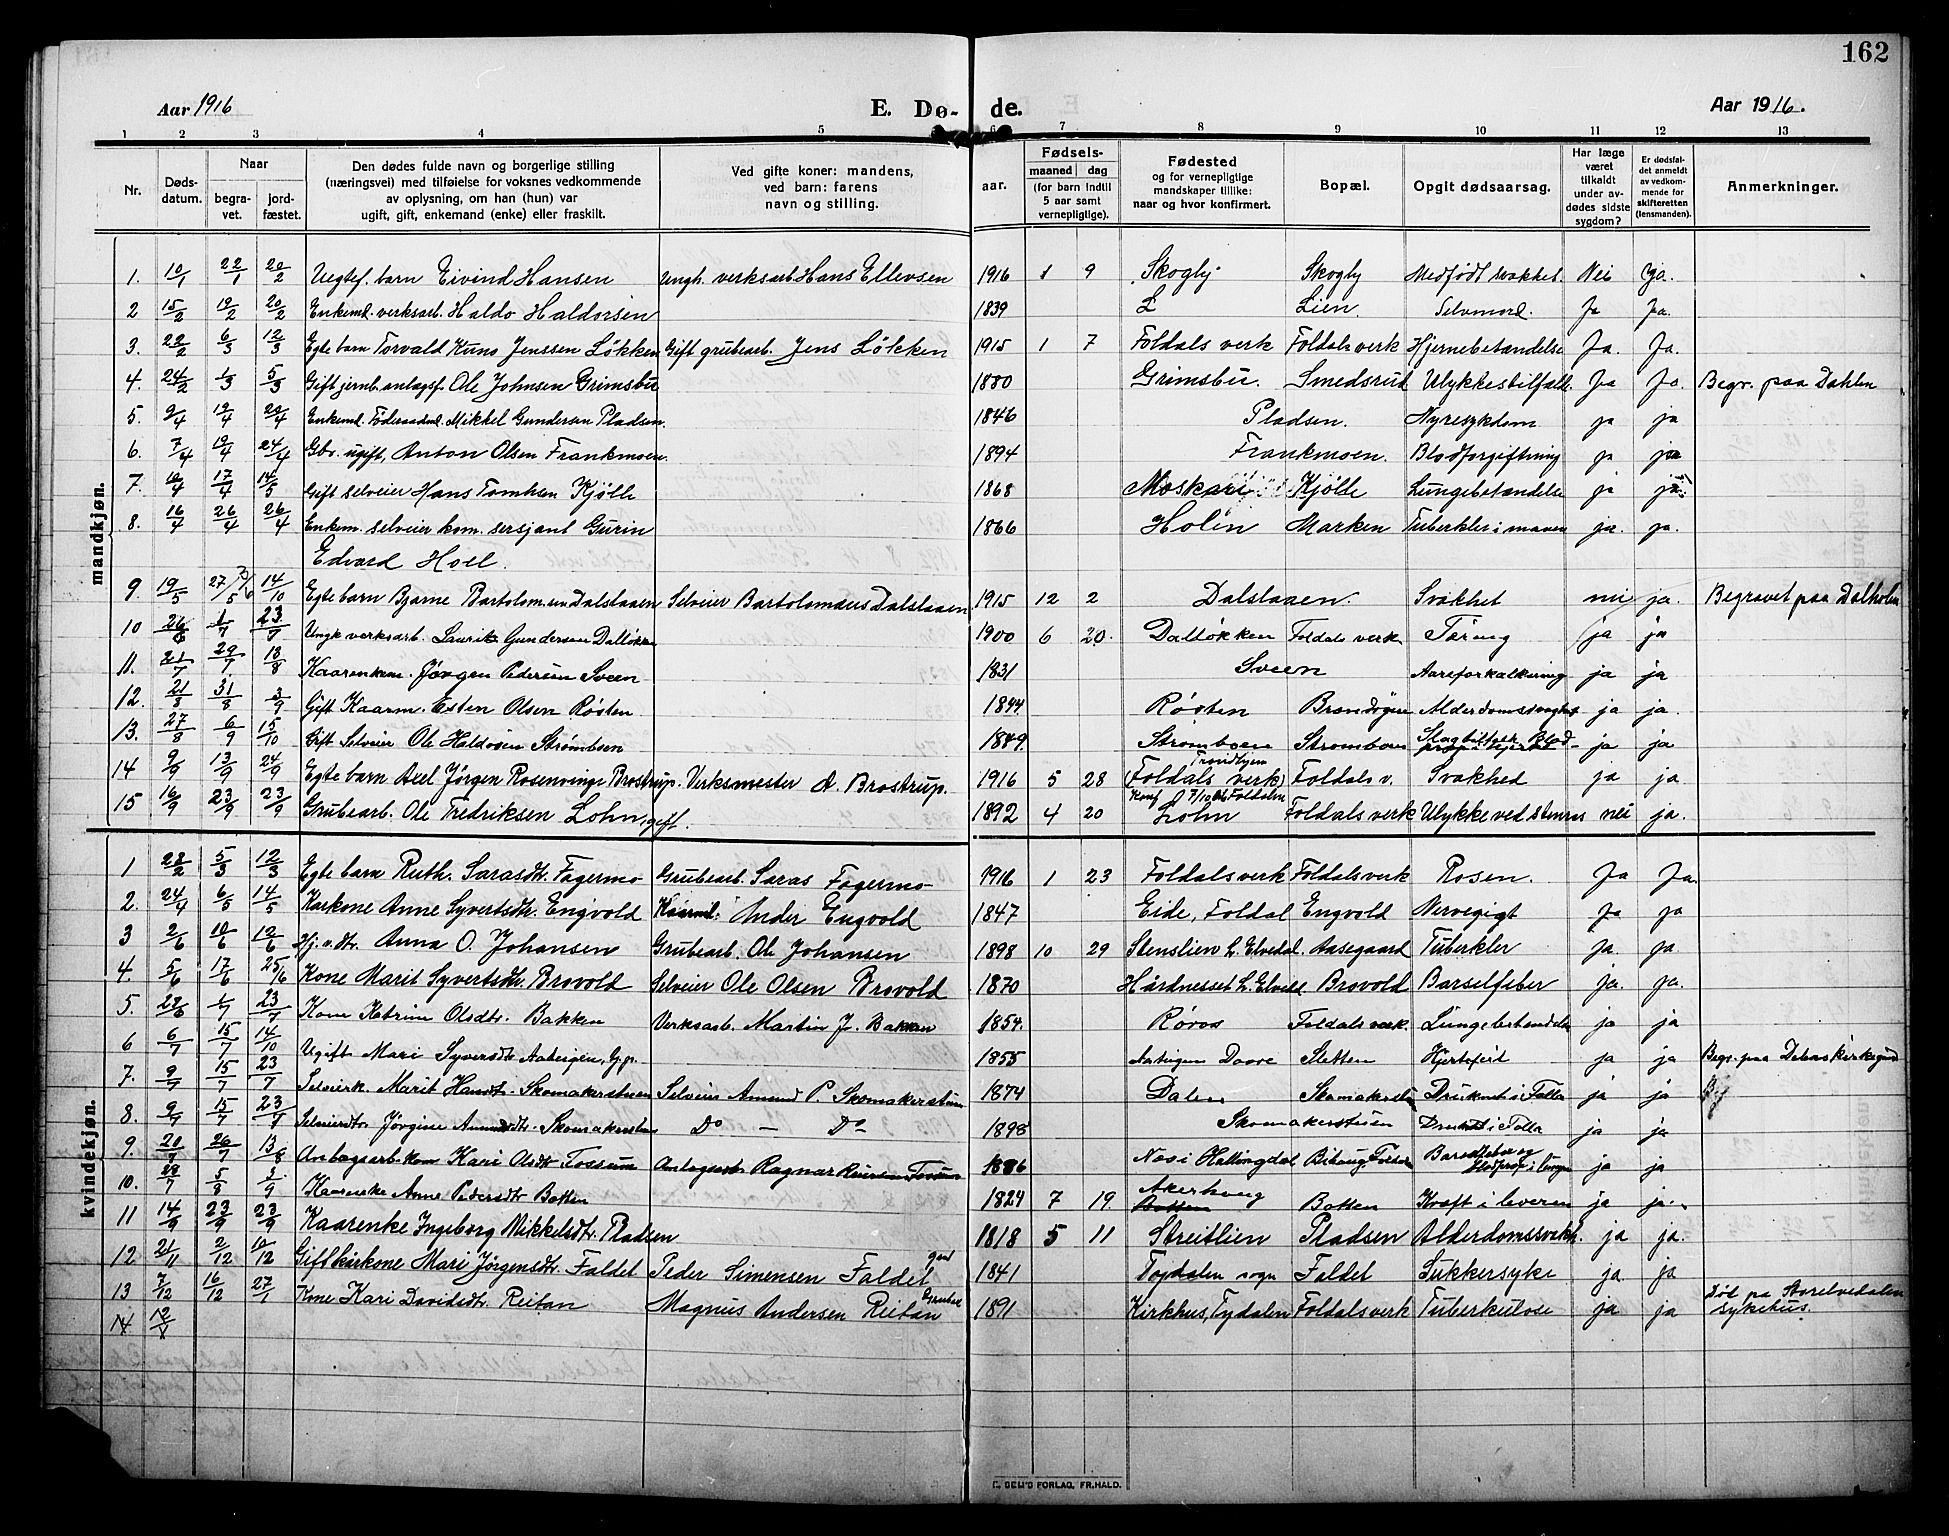 162
Aar 1916 E. Dø- de. Aar 1916.
1 2 3 4 5 6 7 8 9 10 11 12 13
Nr. Døds-datum. Naar begra-vet. jord-fæstet. Den dødes fulde navn og borgerlige stilling (næringsvei) med tilføielse for voksnes vedkommende av oplysning, om han (hun) var ugift, gift, enkemand (enke) eller fraskilt. Ved gifte koner: mandens, ved barn: farens navn og stilling. aar. Fødsels- maaned dag (for barn indtil 5 aar samt vernepligtige). Fødested og for vernepligtige mandskaper tillike: naar og hvor konfirmert. Bopæl. Opgit dødsaarsag. Har læge været tilkaldt under av-dødes sidste sygdom? Er dødsfal-det anmeldt av vedkom-mende for skifteretten (lensmanden). Anmerkninger.
mandkjøn.
1. 10/1 22/1 20/2 Uegtef. barn Eivind Hansen Ungk. verksarb. Hans Ellevsen 1916 1 9 Skogly Skogly Medfödt svakhet. Nei Ja.
2 15/2 19/2 20/2 Enkemd. verksarb. Haldo Haldorsen 1839 L Lien. Selvmord. Ja Ja.
3. 22/2 6/3 12/3 Egte barn Torvald Kuno Jenssen Løkken Gift grubearb. Jens Løkken 1915 1 7 Foldals verk Foldals verk Hjernebetændelse Ja. Ja.
4. 24/2 1/3 5/3 Gift jernb.anlægsf. Ole Johnsen Grimsbu 1880 Grimsbu. Smedsrud Ulykkestilfælde Ja Ja. Begr. paa Dahlen
5. 9/4 19/4 20/4 Enkemd. Føderaadmd. Mikkel Gundersen Pladsen. 1846 Pladsen. Nyresykdom ja ja
6. 7/4 19/4 24/4 Gbr. ugift, Anton Olsen Frankmoen. 1894 Frankmoen. Blodforgiftning ja ja
7. 10/4 17/4 14/5 Gift selveier Hans Tomksen Kjølle 1868 Moskari Kjølle Lungebetændelse ja ja
8. 16/4 26/4 26/4 Enkem. selveier kom. sersjant Gurin 1866 Holen Marken Tuberkler i maven ja. ja.
Edvard Holl.
9. 19/5 27/5 14/10 Egte barn Bjarne Bartolomeusen Dalslaaen Selveier Bartolomæus Dalslaaen 1915 12 2 Dalslaaen. Svakhet nei ja. Begravet paa Dalholen
10 26/6 1/7 23/7 Ungk. verksarb. Laurits Gundersen Dalløkken 1900 6 20. Dalløkken Foldals verk Tæring ja ja
11. 21/7 29/7 13/8 Kaarenkem. Jørgen Pedersen Sveen 1831 Sveen Aareforkalkning ja ja
12. 21/8 31/8 3/9 Gift Kaarm. Esten Olsen Røsten. 1844 Røsten Alderdomssvaghet ja ja.
13. 27/8 6/9 15/10 Gift Selveier Ole Haldosen Strømboen 1849. Stromboen Stromboen Slagtilfælde ja ja
14 9/9 13/9 24/9 Egte barn Axel Jörgen Rosenvinge Brostrup. Verksmester A. Brostrup. 1916 5 28 Trondhjem (Foldals verk) Foldals v. Svakhed ja ja
15 16/9 23/9 23/9 Grubearb. Ole Fredriksen Lohn, gift. 1892 4 20 Konf. 7/10 06 Foldalen Lohn Foldals verk Ulykke ved stenras nei ja.
kvindekjøn.
1 23/2 5/3 12/3 Egte barn Ruth. Sarasdtr. Fagermo Grubearb. Saras Fagermo 1916 1 23 Foldals verk Foldals verk Rosen. Ja Ja.
2. 24/4 6/5 14/5 Karkone Anne Syvertsdtr. Engvold Kaarmd. Ander Engvold 1847 Eide, Foldal Engvold Nervegigt Ja ja
3 2/6 10/6 12/6 Hj. v. dtr. Anna O. Johansen Grubearb. Ole Johansen 1898 10 29 Stenslien L. Elvedal Aasegaard Tuberkler ja. ja
4. 5/6 17/6 25/6 Kone Marit Syvertsdtr. Brovold Selveier Ole Olsen Brovold 1870 Hårdnesset L. Elvedal Brovold Barselfeber ja. ja.
5. 22/6 1/7 23/7 Kone Katrine Olsdtr. Bakken Verksarb. Martin J. Bakken 1854. Røros Foldals verk. Lungebetændelse ja ja
6 6/7 15/7 14/10 Ugift Mari Syversdtr. 1855 Dovre Sletten Hjertefeil ja ja
7. 9/7 15/7 23/7 Selveierk. Marit Hansdtr. Skomakerstuen Selveier Amund P. Skomakerstuen 1874 Dalen Skomakerstuen Druknet i Folla ja ja
8. 9/7 15/7 23/7 Selveierdtr. Jörgine Amundsdtr. Skomakerstuen Do — Do 1898 Skomakerstuen Druknet i Folla ja ja
9. 20/7 26/7 13/8 Anlægsarb. kone Kari Olsdtr. Fossum Anlægsarb. Ragnar Fossum 1886 Nes i Hallingdal Foldal Barselfeber og blodprop i lungen ja ja
10. 29/7 5/8 3/9 Kaarenke Anne Pedersdtr. Botten 1824 7 19. Akerhaug Botten Botten Kræft i leveren ja ja.
11 14/9 23/9 23/9 Kaarenke Ingeborg Mikkelsdtr. Pladsen 1818 5 11 Streitlien Pladsen Alderdomssvakh. ja ja.
12 21/11 2/12 10/12 Gift kårkone Mari Jörgensdtr. Faldet Peder Simensen Faldet 1841 Faldet Sukkersyke ja. ja
13 7/12 16/12 27/1 Kone Kari Davidsdtr. Reitan Magnus Andersen Reitan Grubearb. 1891 Kirkhus, Tydalen Foldals verk Tuberkulose ja ja Död på Storelvedalen sykehus.
14
FR. HALD.